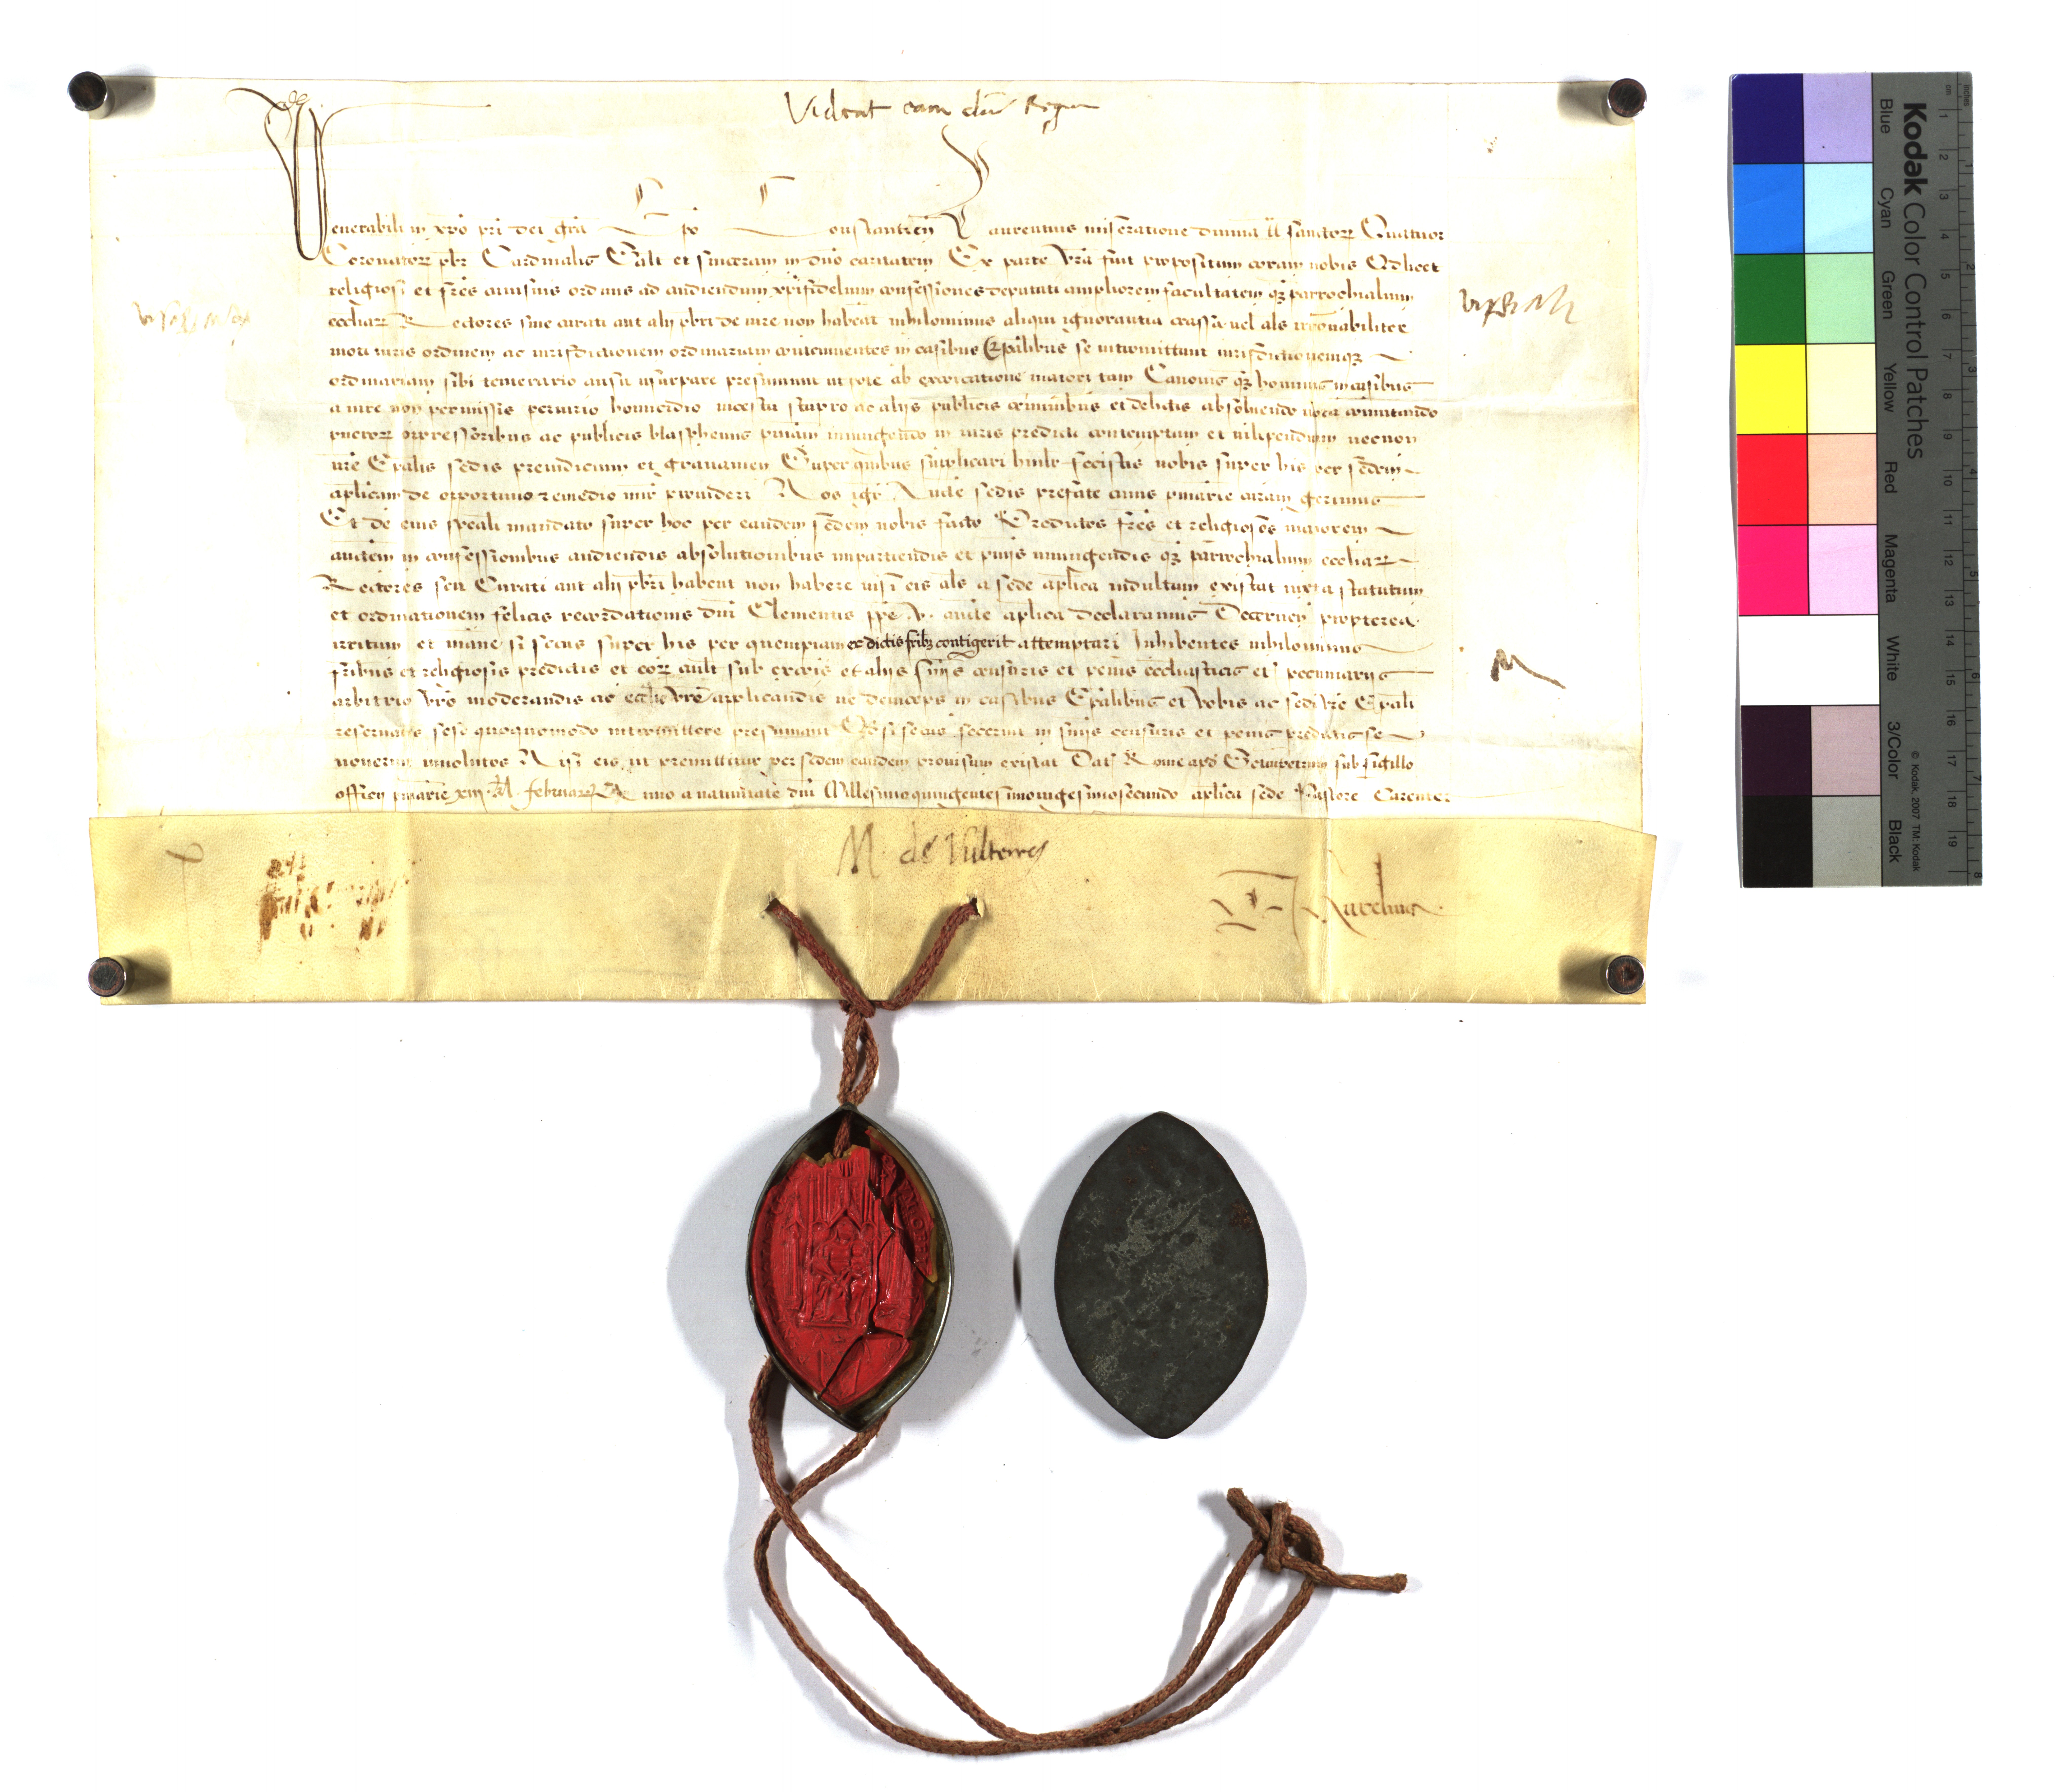 Videat eam dns Regen
Venerabili in xpo pri dei gra Epo Constantien Laurentius miseratione diuina tt sanctorum Quatuor
Coronatorum pbr Cardinalis Salt et sinceram in dno caritatem Ex parte vra fuit propositum coram nobis Q licet
religiosi et fres cuiusuis ordinis ad audiendum xpifidelium confessiones deputati ampliorem facultatem qz parrochialium
ecclesiarum Rectores siue curati aut alij pbri de iure non habeat nihilominus aliqui ignorantia crassa uel als irronabiliter
moti iuris ordinem ac iurisdictionem ordinariam contemnentes in casibus Epalibus se intromittunt iurisdictionemqz
ordinariam sibi temerario ausu usurpare presumunt utpote ab excoicatione maiori tam Canonis qz hominis in casibus
a iure non permissis periurio homicidio incestu stupro ac alijs publicis criminibus et delictis absoluendo uota comutando
puerorum oppressoribus ac publicis blasphemis pniam iniungendo in iuris predicti contemptum et uilipendium necnon
vre Epalis sedis preiudicium et grauamen Super quibus supplicari humilr fecistis nobis super his per sedem
aplicam de oportuno remedio misericorditer prouideri Nos igr Aucte sedis prefate cuius pniarie curam gerimus
Et de eius speali mandato super hoc per eandem sedem nobis facto Predictos fres et religiosos maiorem
auctem in confessionibus audiendis absolutionibus impartiendis et pnijs iniungendis qz parrochialium ecclesiarum
Rectores seu Curati aut alij pbri habent non habere nisi eis als a sede aplica indultum existat iuxta statutum
et ordinationem felicis recordationis dni Clementis ppe V. aucte aplica declaramus Decernen propterea
irritum et inane si secus super his per quempiam ex dictis fribz contigerit attemptari Inhibentes nihilominus
fribus et religiosis predictis et eorum cuilt sub excois et alijs snijs censuris et penis ecclesiasticis et pecuniarijs
arbitrio vro moderandis ac ecclie vre applicandis ne deinceps in casibus Epalibus et vobis ac sedi vre Epali
reseruatis sese quoquomodo intromittere presumant Qd si secus fecerint in snijs censuris et penis predictis se
nouerint inuolutos Nisi eis ut premittitur per sedem eandem prouisum existat Dat Rome apd Sctumpetrum sub sigillo
officij pniarie xiij kl. februarij Anno a natiuitate dni Millesimoquingentesimouigesimosecundo aplica sede Pastore Carente
M. de Vulterris
Kodak Color Control Patches
Blue Cyan Green Yellow Red Magenta White 3/Color Black
© Kodak, 2007 TM: Kodak
cm 1 2 3 4 5 6 7 8 9 10 11 12 13 14 15 16 17 18 19
inches 1 2 3 4 5 6 7 8